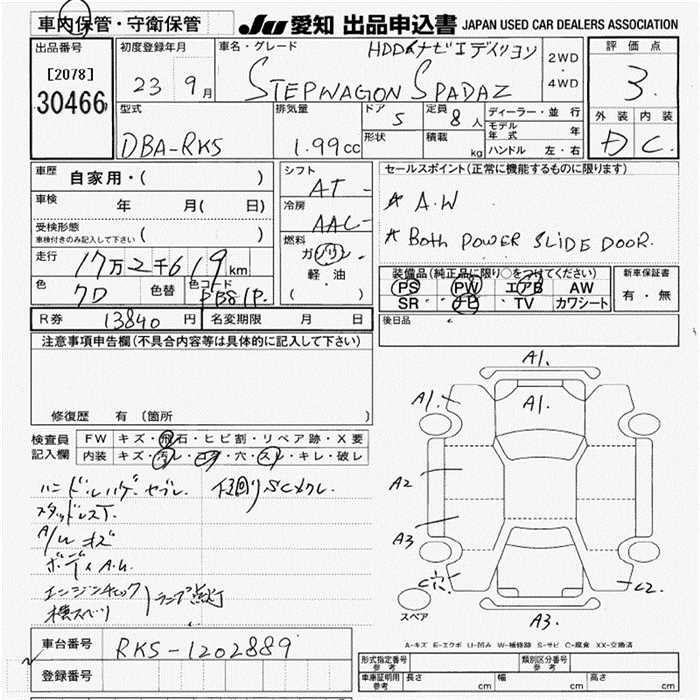 車内保管・守衛保管
JU 愛知 出品申込書 JAPAN USED CAR DEALERS ASSOCIATION
出品番号
[2078]
30466
初度登録年月
23 9月
車名・グレード
HDDナビエディション
STEPWAGON SPADAZ
2WD
・
4WD
評価点
3.
外装 内装
D C.
型式
DBA-RK5
排気量
1.99cc
ドア 5
形状
定員 8人
積載 kg
ディーラー・並行
モデル年式 年
ハンドル 左・右
車歴 自家用・( )
車検 年 月( 日)
受検形態
車検付きのみ記入して下さい ( )
走行 17万2千619km
色 7D 色替 色コード PB81P.
シフト AT-
冷房 AAC-
燃料
ガソリン
軽油
( )
セールスポイント(正常に機能するものに限ります)
* A.W
* Both POWER SLIDE DOOR.
装備品(純正品に限り○をつけてください)
PS PW エアB AW
SR ナビ TV カワシート
新車保証書
有・無
R券 13840円 名変期限 月 日
後日品
注意事項申告欄(不具合内容等は具体的に記入して下さい)
修復歴 有 (箇所 )
検査員記入欄
FW キズ・飛石・ヒビ割・リペア跡・X要
内装 キズ・汚レ・コゲ・穴・スレ・キレ・破レ
ハンドルハゲ・ヤブレ. 下回りSCメクレ.
スタッドレスT.
A/W キズ
ボディA.U.
エンジンチェック
横スベリ
ランプ点灯
A1.
A1.
A1.
A2
A3
C穴
C2.
A3.
スペア
A-キズ E-エクボ U-凹み W-補修跡 S-サビ C-腐食 XX-交換済
車台番号 RK5-1202889
登録番号
形式指定番号
参考
類別区分番号
参考
車庫証明用
参考
長さ cm 幅 cm 高さ cm